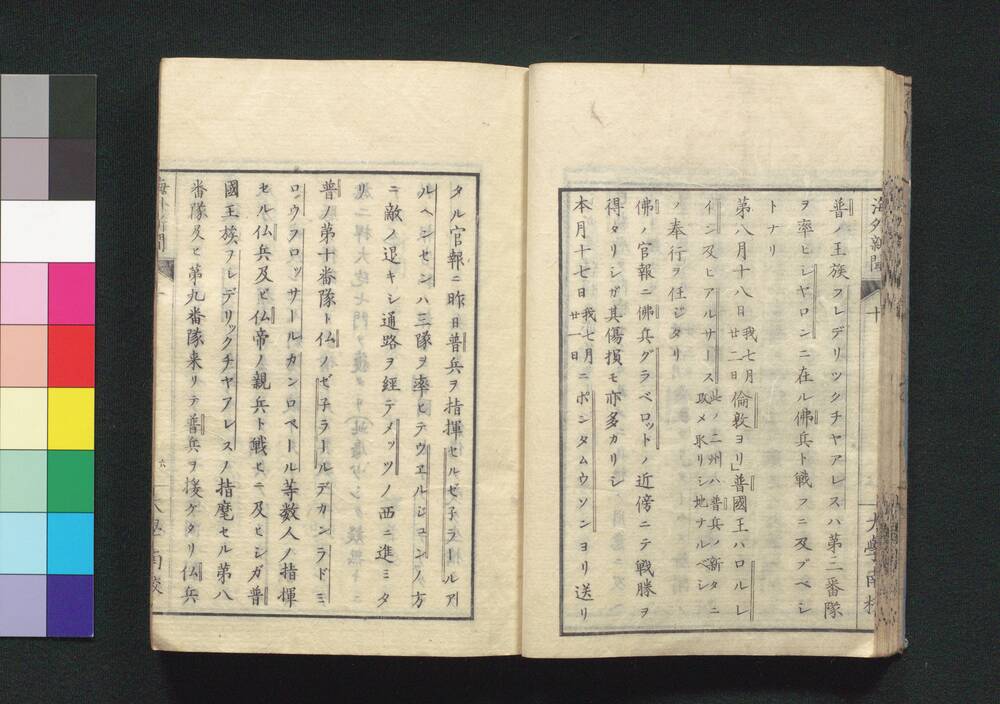 海外新聞 十
大學南校
普ノ王族フレデリックチヤアレスハ第二番隊
ヲ率ヒシヤロンニ在ル佛兵ト戰フニ及ブベシ
トナリ
第八月十八日我七月廿二日倫敦ヨリ」普國王ハロルレ
イン及ヒアルサース此ノ二州ハ普兵ノ新タニ攻メ取リシ地ナルベシ
ノ奉行ヲ任ジタリ
佛ノ官報ニ佛兵グラベロットノ近傍ニテ戰勝ヲ
得タリシガ其傷損モ亦多カリシ
本月十七日我七月廿一日ニポンタムウソンヨリ送リ
タル官報ニ昨日普兵ヲ指揮セルゼ子ラールア
ルヘンセンハ三隊ヲ率ヒテヴヱルジユンノ方
ニ敵ノ退キシ通路ヲ經テメッツノ西ニ進ミタ
リ
普ノ第十番隊ト仏ノゼ子ラールデカンラドミ
ロ、ウフロッサールカンロベール等数人ノ指揮
セル仏兵及ビ仏帝ノ親兵ト戰ヒニ及ヒシガ普
國王族フレデリックチヤアレスノ指麾セル第八
番隊及ヒ第九番隊来リテ普兵ヲ援ケタリ仏兵
海外新聞
六
大學南校